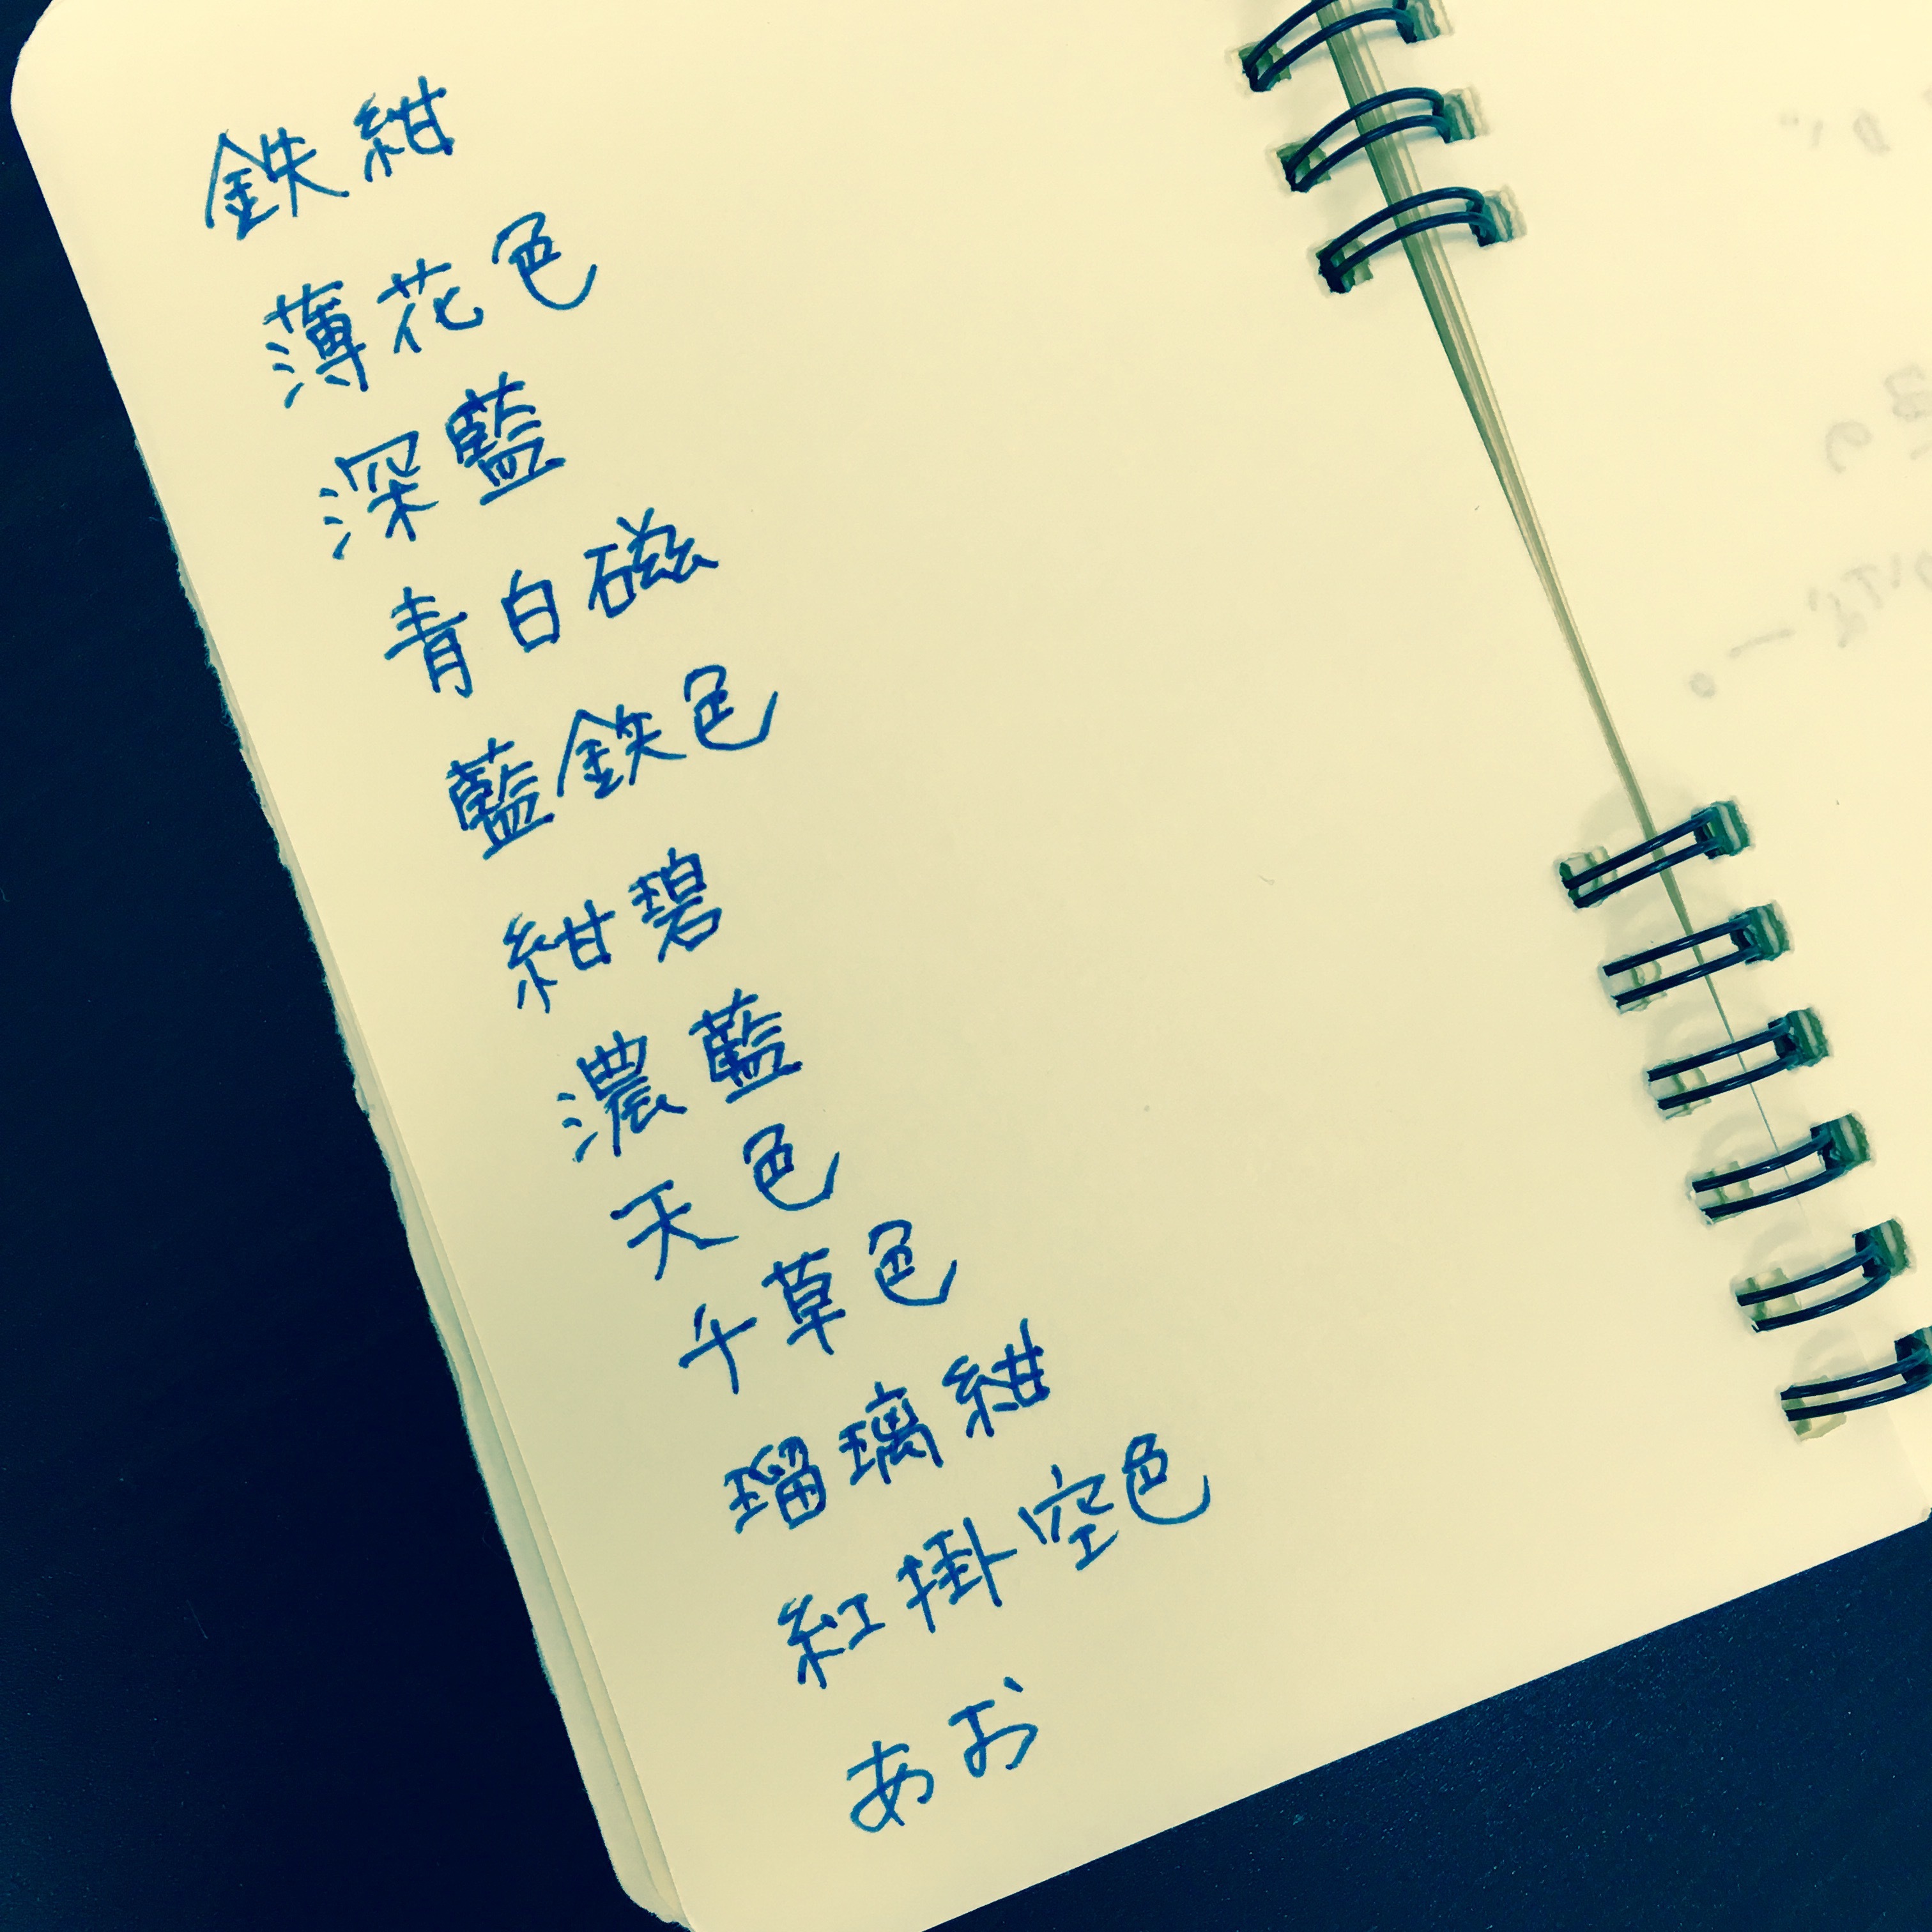 鉄紺
薄花色
深藍
青白磁
藍鉄色
紺碧
濃藍
天色
千草色
瑠璃紺
紅掛空色
あお